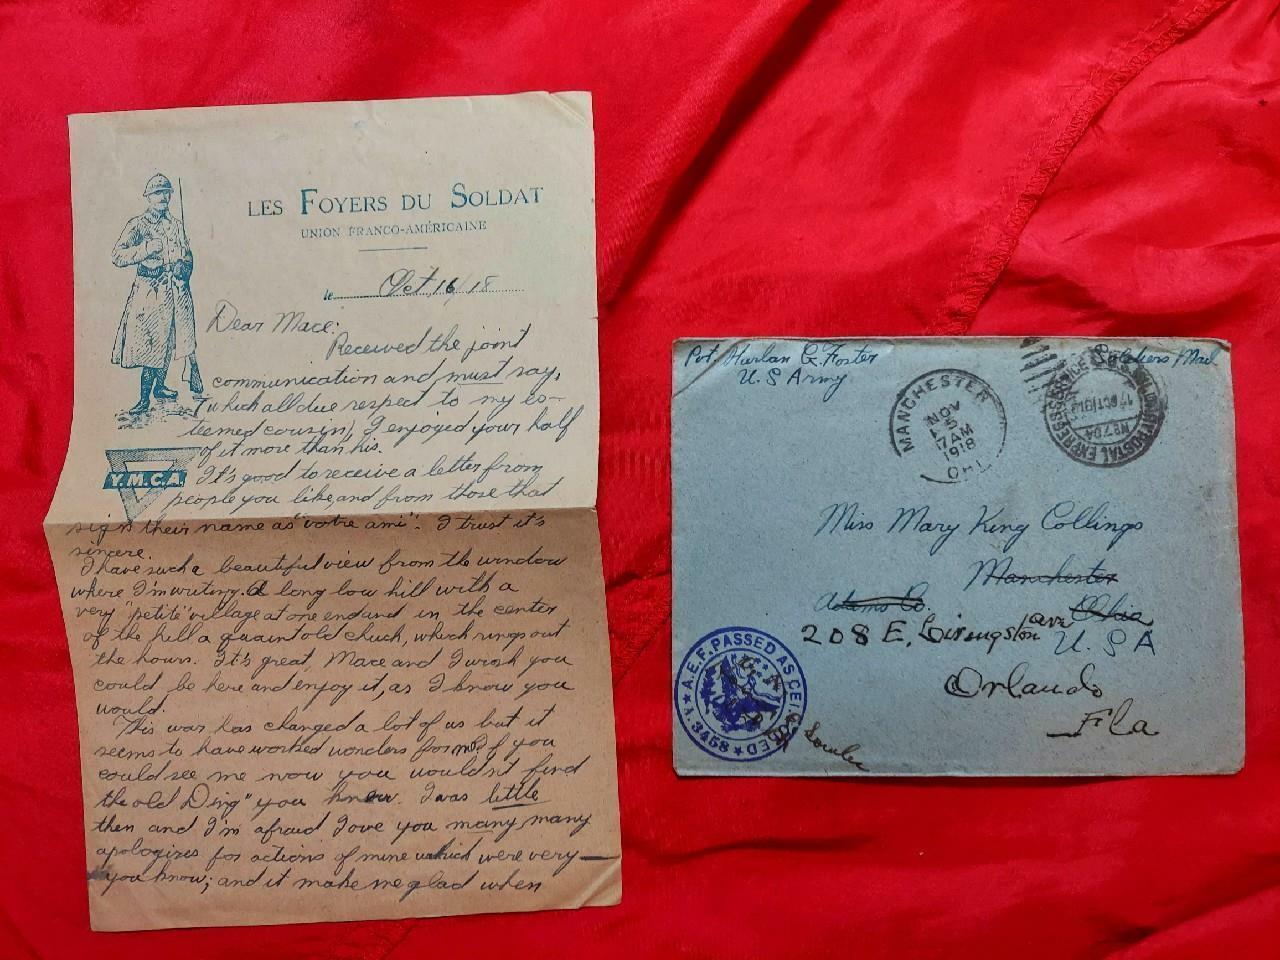 LES FOYERS DU SOLDAT
UNION FRANCO-AMÉRICAINE
le Oct, 16/18
Y.M.C.A.
Dear Mace:
Received the joint
communication and must say,
(which all due respect to my es-
teemed cousin), I enjoyed your half
of it more than his.
It's good to receive a letter from
people you like, and from those that
sign their name as "votre ami". I trust it's
sincere.
I have such a beautiful view from the window
where I'm writing. A long low hill with a
very "petite" village at one end and in the center
of the hill a quaint old chuch, which rings out
the hours. It's great, Mace and I wish you
could be here and enjoy it, as I know you
would.
This war has changed a lot of us but it
seems to have worked wonders for me. If you
could see me now you wouldn't find
the old Ding" you knew. I was little
then and I'm afraid I owe you many, many
apologizes for actions of mine which were very—
you know; and it make me glad when
Pvt. Harlan G. Foster
U.S Army
Soldiers Mail
MANCHESTER
NOV
5
7AM
1918
OHIO
U.S. MILITARY POSTAL EXPRESS SERVICE
17 OCT 1918
No 704
Miss Mary King Collings
Manchester
Adams Co. Ohio
208 E. Livingston ave
U.S A
Orlando
Fla
A.E.F. PASSED AS CENSORED
A. 3458